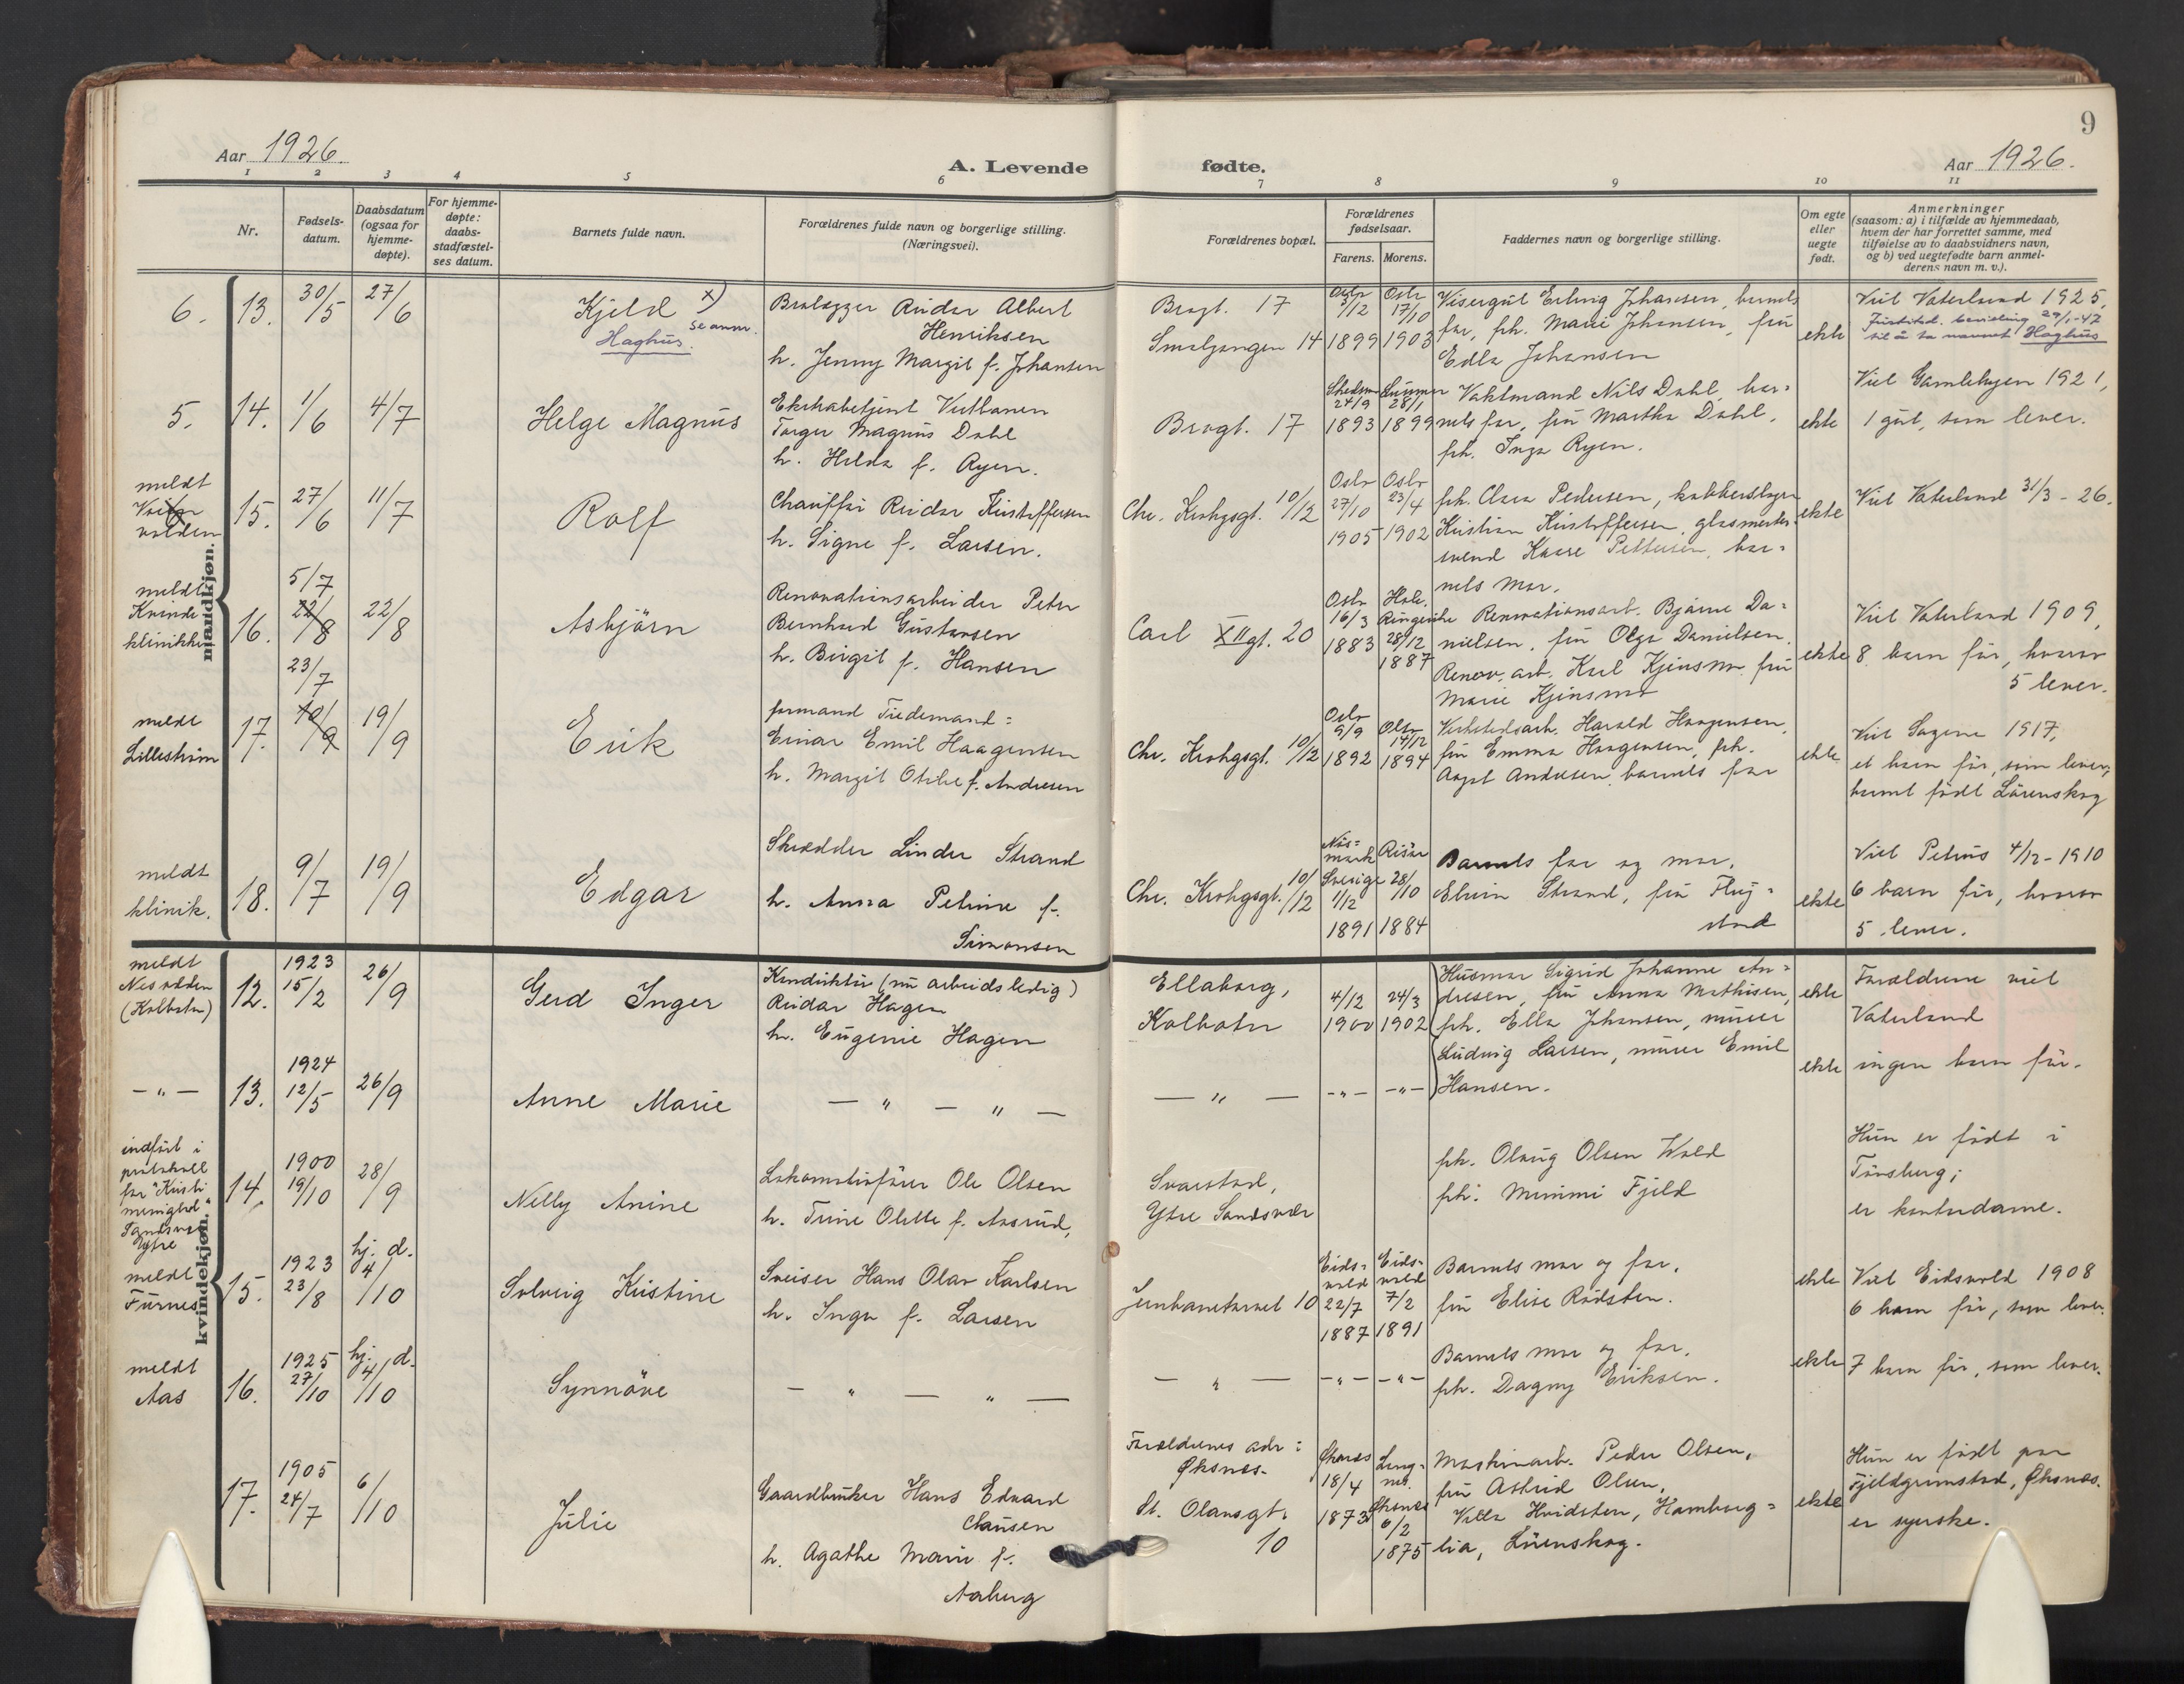 Aar 1926.
A. Levende
fødte.
Aar 1926.
9
1 2 3 4 5 6 7 8 9 10 11
Nr.
Fødsels-
datum.
Daabsdatum
(ogsaa for
hjemme-
døpte).
For hjemme-
døpte:
daabs-
stadfæstel-
ses datum.
Barnets fulde navn.
Forældrenes fulde navn og borgerlige stilling.
(Næringsvei).
Forældrenes bopæl.
Forældrenes
fødselsaar.
Farens. Morens.
Faddernes navn og borgerlige stilling.
Om egte
eller
uegte
født.
Anmerkninger
(saasom: a) i tilfælde av hjemmedaab,
hvem der har forrettet samme, med
tilføielse av to daabsvidners navn,
og b) ved uegtefødte barn anmel-
derens navn m. v.).
mandkjøn.
6. 13. 30/5 27/6
Kjeld x)
se anm.
Haghus.
Brolægger Reidar Albert
Henriksen
h. Jenny Margit f. Johansen
Brogt. 17
Smalgangen 14
Oslo 3/12 1899
Oslo 17/10 1903
Visergut Erling Johansen, barnets
far, frk. Marie Johansen, fru
Edla Johansen
ekte
Viet Vaterland 1925.
Justitsd. bevilling 29/1-47
til å ta navnet Haghus
5. 14. 1/6 4/7
Helge Magnus
Ekstrabetjent Vestbanen
Torger Magnus Dahl
h. Hilda f. Ryen.
Brogt. 17
24/9 1893
28/1 1899
Vaktmand Nils Dahl, bar-
nets far, fru Martha Dahl,
frk. Inga Ryen.
ekte
Viet Gamlebyen 1921,
1 gut, som lever.
meldt
15. 27/6 11/7
Rolf
Chauffør Reidar Kristoffersen
h. Signe f. Larsen.
Chr. Krohgsgt. 10/12
Oslo 27/10 1905
Oslo 23/4 1902
frk. Clara Pedersen, kobberslager
Kristian Kristoffersen, glasmester-
svend Kaare Pettersen, bar-
nets mor.
ekte
Viet Vaterland 31/3-26.
meldt
Kvinde
klinikken
16. 5/7 22/8 22/8
Asbjörn
Renovationsarbeider Peter
Bernhard Gustavsen
h. Birgit f. Hansen
Carl XII gt. 20
Oslo 16/3 1883
Hole, Ringerike 28/12 1887
Renovationsarb. Bjarne Da-
nielsen, fru Olga Danielsen.
Renov. arb. Karl Kjensmo fru
Marie Kjensmo
ekte
Viet Vaterland 1909,
8 barn før, hvorav
5 lever.
meldt
Lilleström
17. 23/7 10/9 19/9
Erik
formand Tiedemand:
Einar Emil Haagensen
h. Margit Otilie f. Andresen
Chr. Krohgsgt. 10/12
Oslo 9/9 1892
Oslo 14/12 1894
Verkstedsarb. Harald Haagensen,
fru Emma Haagensen, frk.
Aagot Andresen, barnets far
ekte
Viet Sagene 1917,
et barn før, som lever,
barnet født Lörenskog
meldt
klinik.
18. 9/7 19/9
Edgar
Skrædder Linder Strand
h. Anna Petrine f.
Simonsen
Chr. Krohgsgt. 10/12
Nös-
mark
Sverige
1/12 1891
Risör 28/10 1884
Barnets far og mor,
Elvin Strand, fru Flug-
stad
ekte
Viet Petrus 4/12-1910
6 barn før, hvorav
5 lever.
kvindekjøn.
meldt
Nesodden
(Kolbotn)
12. 1923 15/2 26/9
Gerd Inger
Konduktør (nu arbeidsledig)
Reidar Hagen
h. Eugenie Hagen
Ellaborg,
Kolbotn
4/12 1900
24/3 1902
Husmor Sigrid Johanne An-
dresen, fru Anna Mathisen,
frk. Ella Johansen, murer
Ludvig Larsen, murer Emil
Hansen.
ekte
Forældrene viet
Vaterland
— " —
13. 1924 12/5 26/9
Anne Marie
— " — " —
— " — — " — — " —
ekte
ingen barn før.
indført i
protokoll
for "Kristi
menighed"
Sandsvær
Ytre
14. 1900 19/10 28/9
Nelly Anine
Lokomotivfører Ole Olsen
h. Trine Olette f. Aasrud,
Svarstad,
Ytre Sandsvær
frk. Olaug Olsen Wold
frk. Mimmi Fjeld
Hun er født i
Tönsberg;
er kontordame.
meldt
Furnes
15. 1923 23/8 hj. d. 4/10
Solveig Kristine
Sveiser Hans Olav Karlsen
h. Inga f. Larsen
Jernbanetorvet 10
Eids-
vold 22/7 1887
Eids-
vold 7/2 1891
Barnets mor og far,
fru Elise Rødsten.
ekte
Viet Eidsvold 1908
6 barn før, som lever.
meldt
Aas
16. 1925 27/10 hj. d. 4/10
Synnöve
— " — " —
— " — — " — — " —
Barnets mor og far,
frk. Dagny Eriksen.
ekte
7 barn før, som lever.
17. 1905 24/7 6/10
Julie
Gaardbruker Hans Edvard
Clausen
h. Agathe Marie f.
Aaberg
Forældrenes adr:
Øksnes.
St. Olavsgt.
10
Øksnes 18/4 1873
Øksnes 6/2 1875
Maskinarb. Peder Olsen,
fru Astrid Olsen,
Villa Hvidsten, Hamborg-
lia, Lörenskog.
ekte
Hun er født paa
Fjeldgrimstad, Øksnes.
er syerske.